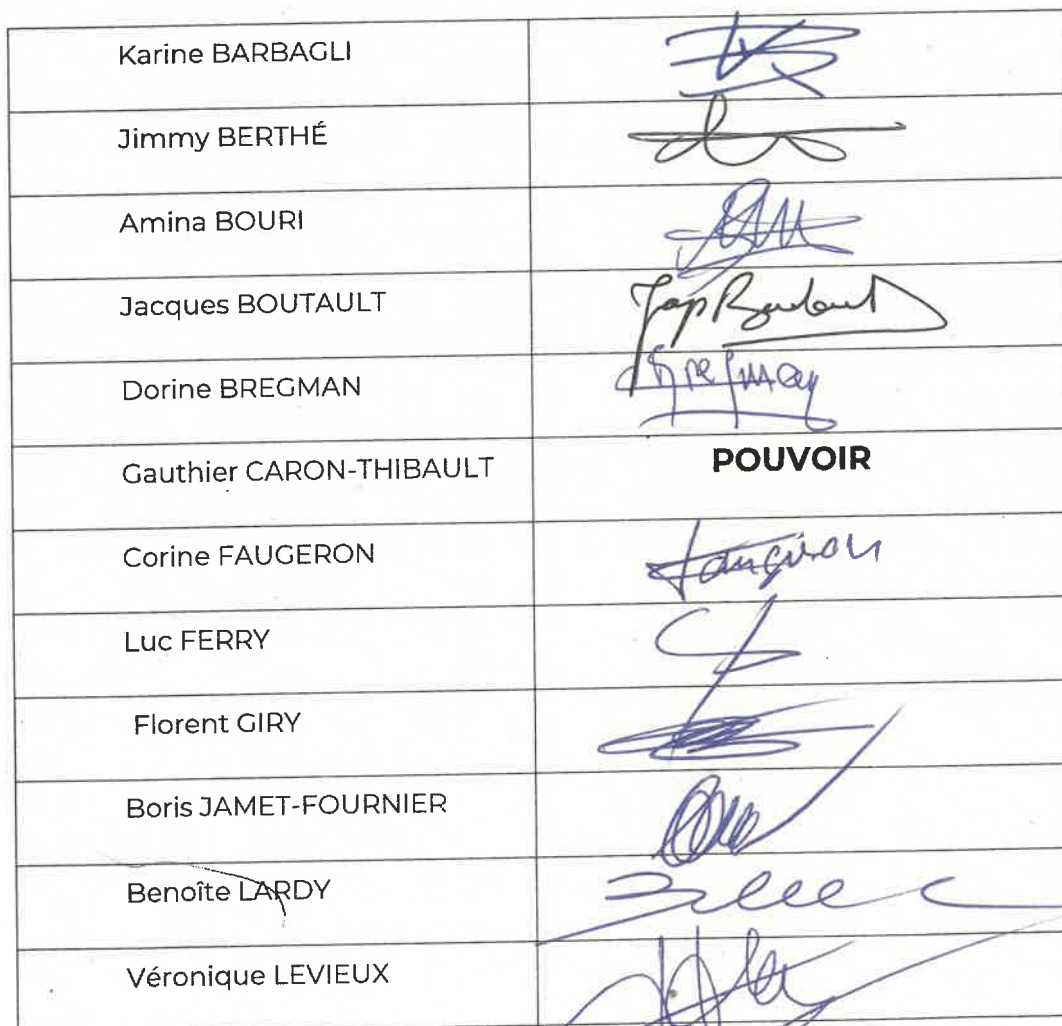 Karine BARBAGLI
Jimmy BERTHÉ
Amina BOURI
Jacques BOUTAULT
Dorine BREGMAN
Gauthier CARON-THIBAULT
POUVOIR
Corine FAUGERON
Faugeron
Luc FERRY
Florent GIRY
Boris JAMET-FOURNIER
Benoîte LARDY
Véronique LEVIEUX